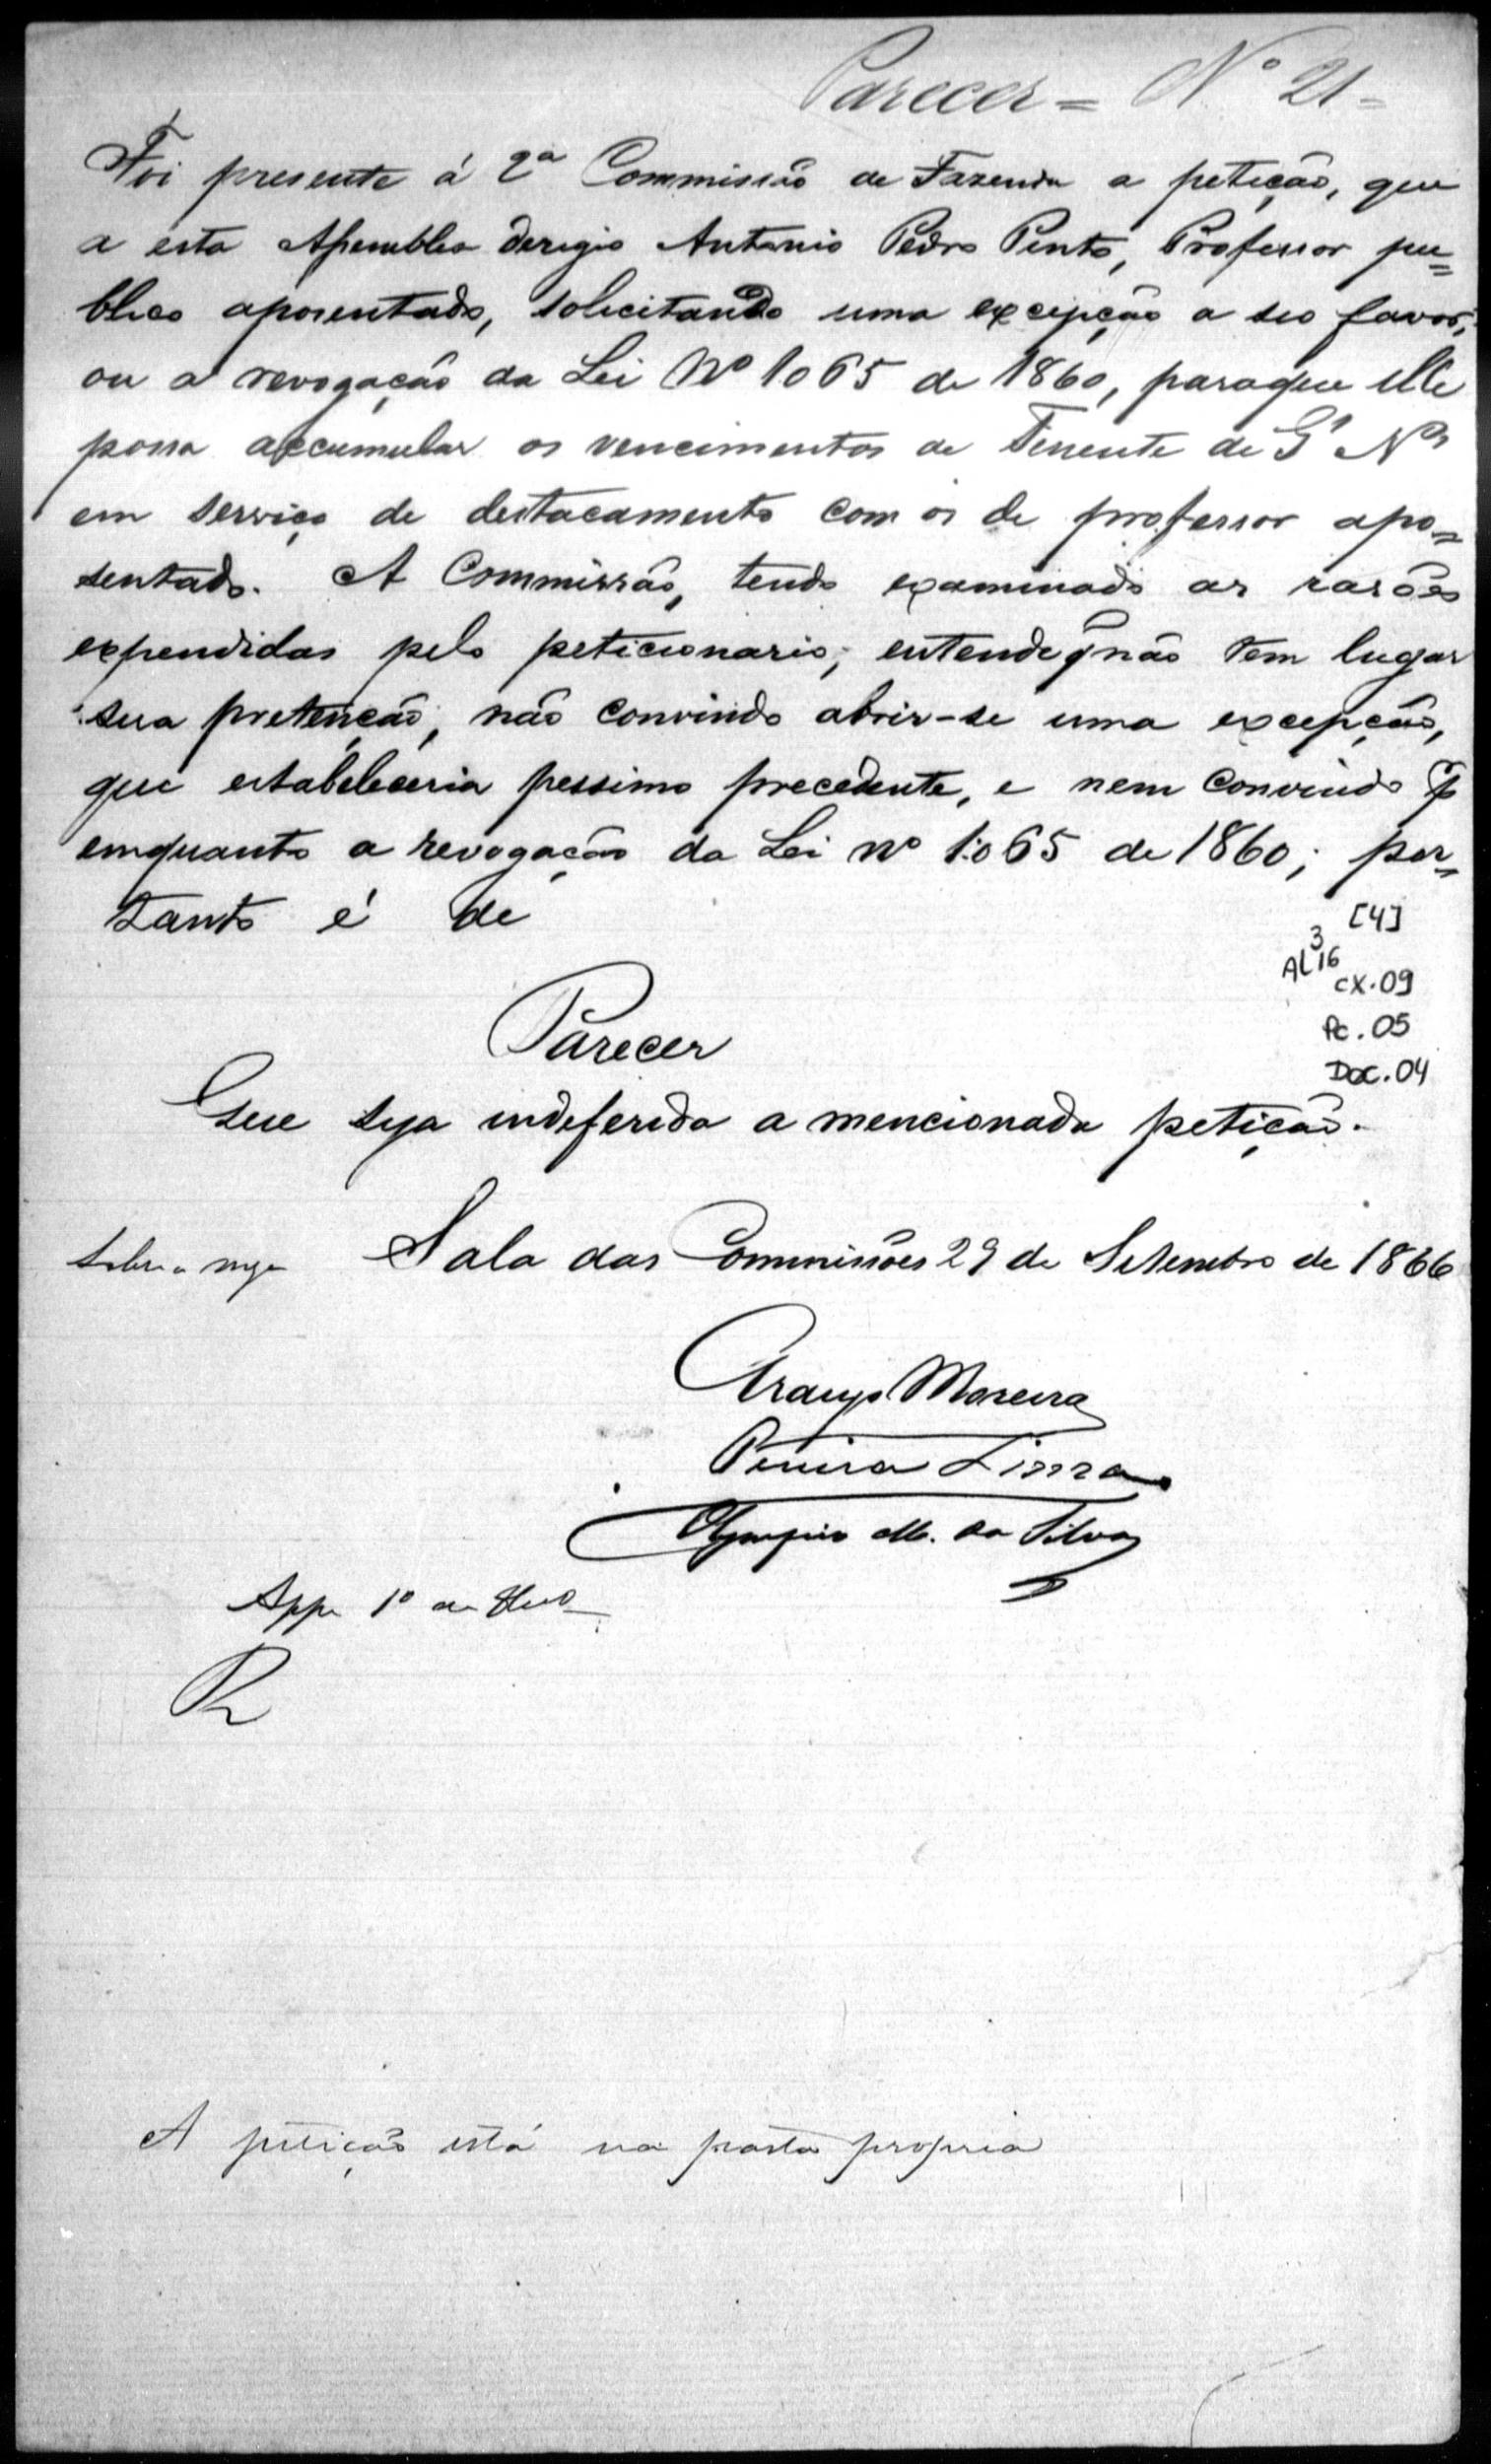 Parecer = Nº 21 =
Foi presente á 2ª Commissão de Fazenda a petição, que
a esta Assemblea derigio Antonio Pedro Pinto, Professor pu=
blico aposentado, solicitando uma excepção a seo favor,
ou a revogação da Lei Nº 1065 de 1860, paraque elle
possa accumular os vencimentos de Tenente de Gª Nª
em serviço de destacamento com os de professor apo=
sentado. A Commissão, tendo examinado as rasões
expendidas pelo peticionario, entende q̃ não tem lugar
sua pretenção, não convindo abrir-se uma excepção,
que estabeleceria pessimo precedente, e nem convindo p̃
emquanto a revogação da Lei nº 1:065 de 1860; por=
tanto é de
[4]
AL 3 16
CX.09
Pc.05
Doc.04
Parecer
Que seja indeferida a mencionada petição.
Sobre a meza
Sala das Commissões 29 de Setembro de 1866
Araujo Moreira
Pereira Lima
Olympio M. da Silva
App. 1º de
R
A petição está na pasta propria